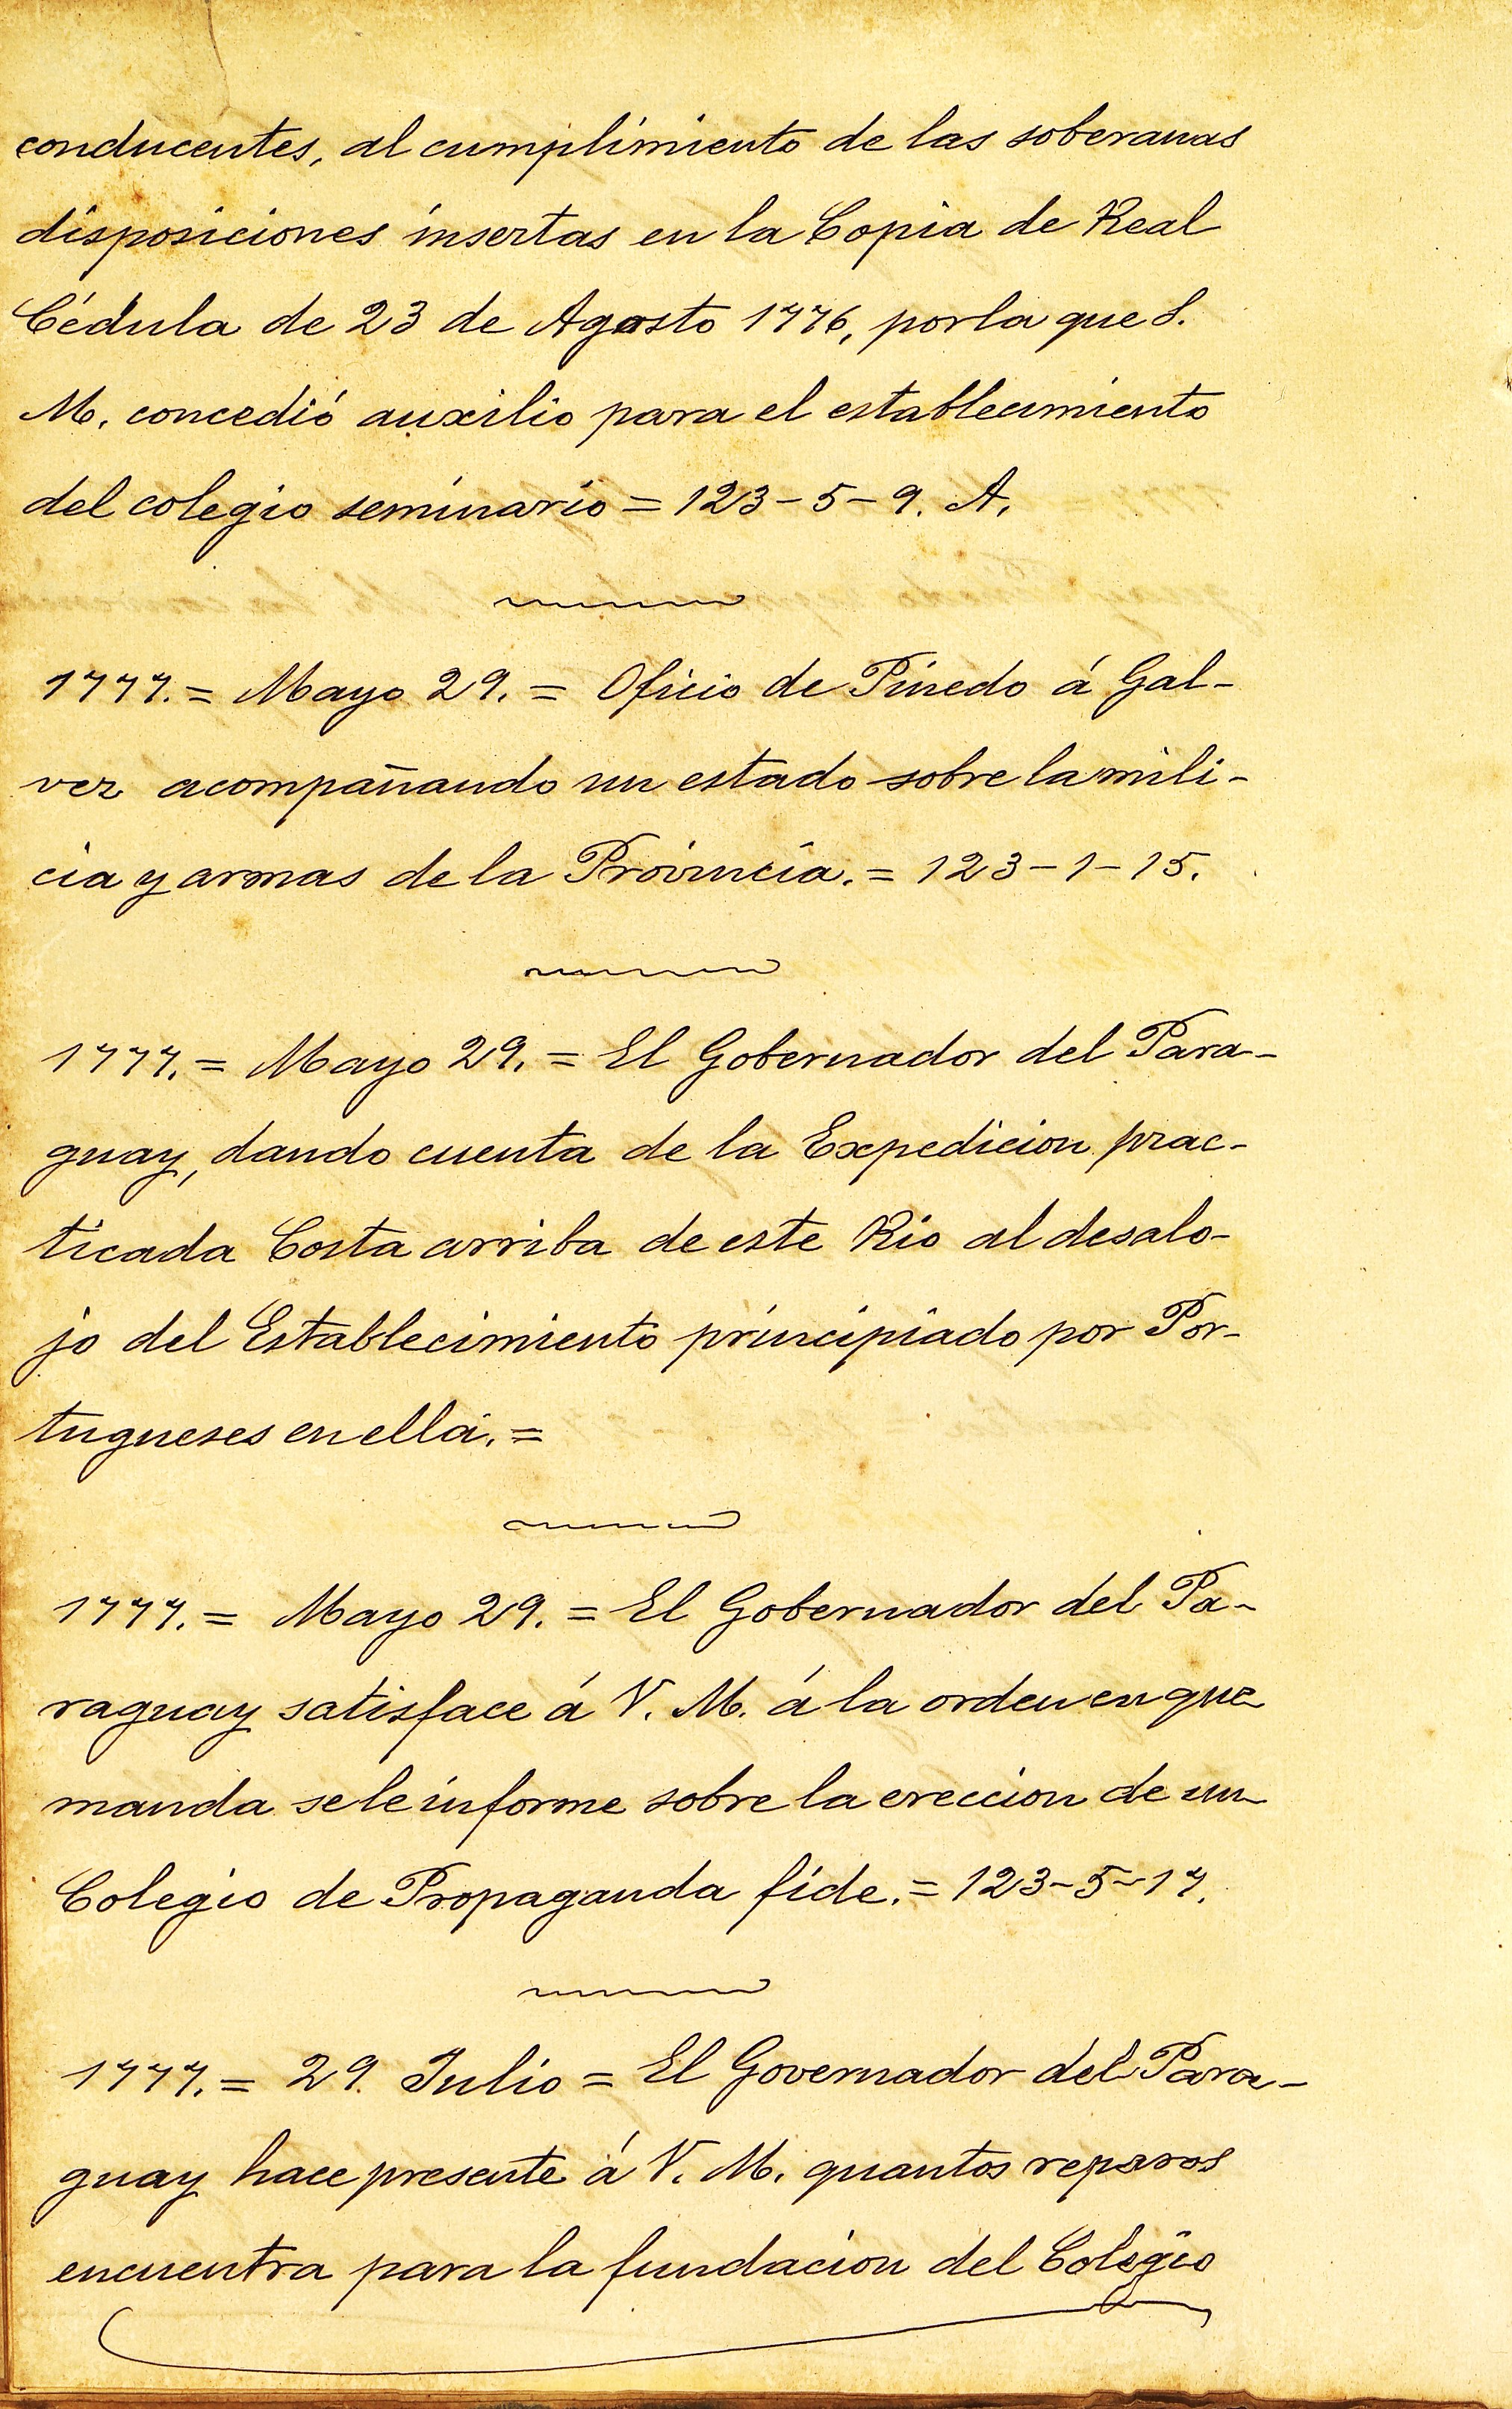 conducentes, al cumplimiento de las soberanas
disposiciones insertas en la Copia de Real
Cédula de 23 de Agosto 1776, por la que S.
M. concedió auxilio para el establecimiento
del colegio seminario = 123-5-9. A.
1777. = Mayo 29. = Oficio de Pinedo á Gal-
vez acompañando un estado sobre la mili-
cia y armas de la Provincia. = 123-1-15.
1777. = Mayo 29. = El Gobernador del Para-
guay, dando cuenta de la Expedicion prac-
ticada Costa arriba de este Rio al desalo-
jo del Establecimiento principiado por Por-
tugueses en ella. =
1777. = Mayo 29. = El Gobernador del Pa-
raguay satisface á V. M. á la orden en que
manda se le informe sobre la ereccion de un
Colegio de Propaganda fide. = 123-5-17.
1777. = 29. Julio = El Governador del Para-
guay hace presente á V. M. quantos reparos
encuentra para la fundacion del Colegio